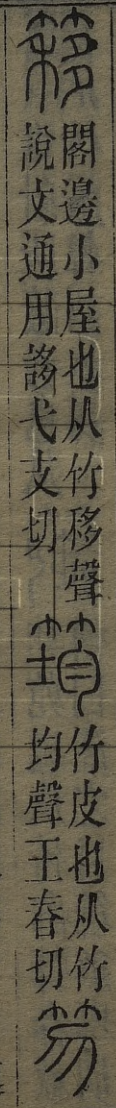 簃
閣邊小屋也从竹移聲
說文通用誃弋支切
筠
竹皮也从竹
均聲王春切
笏